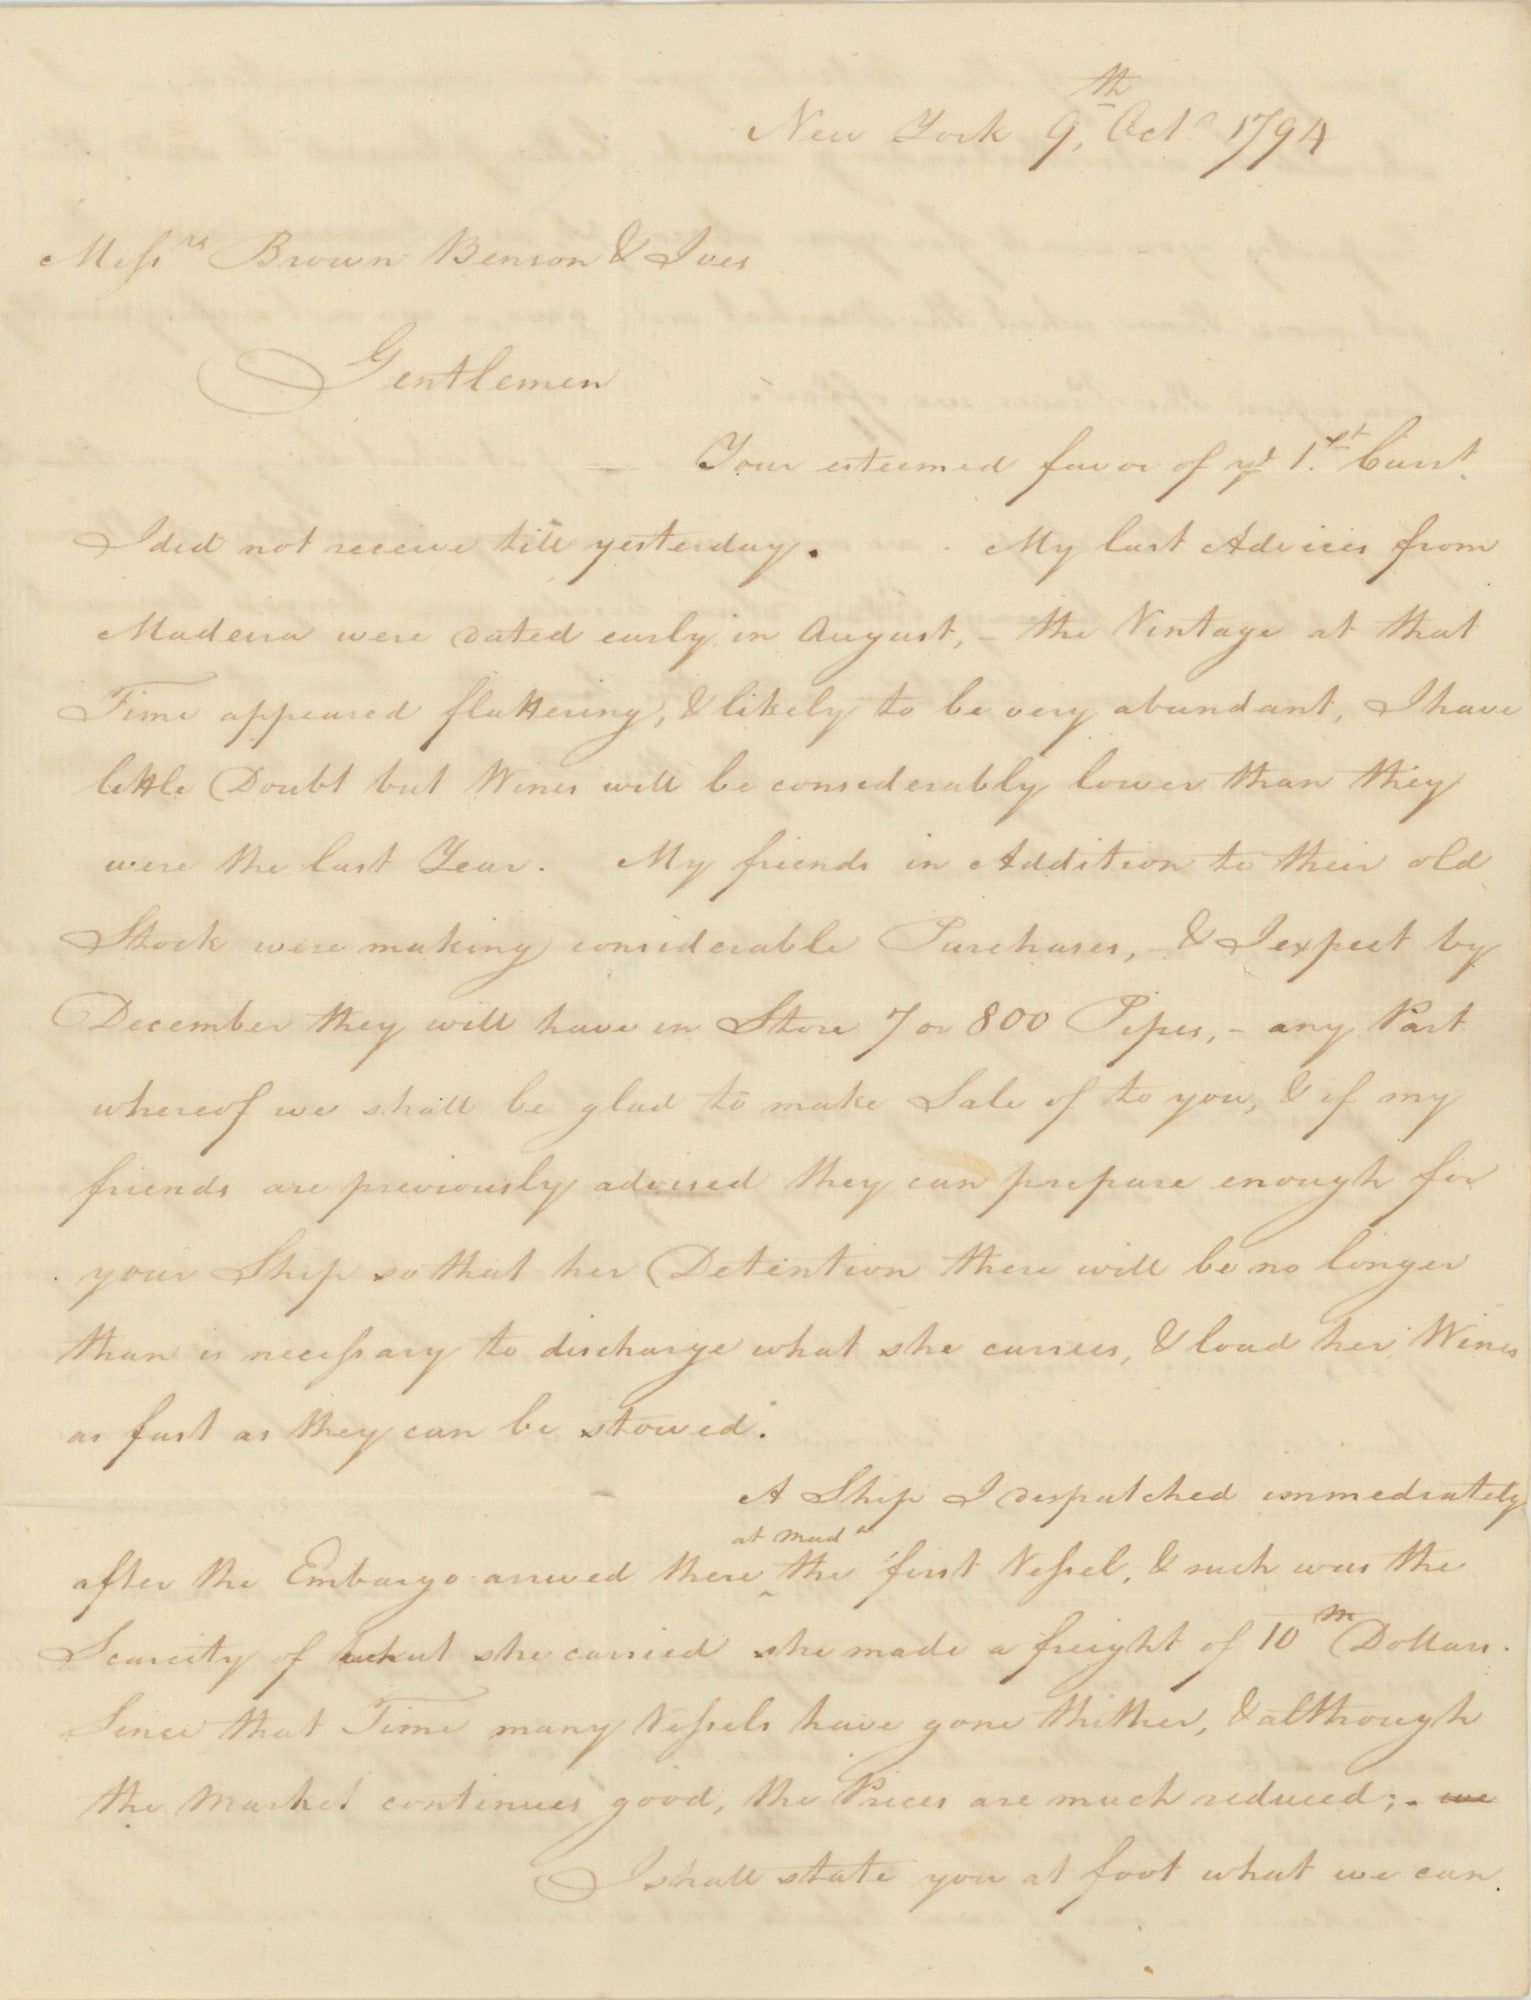 New York 9th, Octr 1794
Messrs Brown Benson & Ives
Gentlemen
Your esteemed favor of ye 1st. Currt.
I did not receive till yesterday. My last Advices from
Madeira were dated early in August, - the Vintage at that
Time appeared flattering, & likely to be very abundant, I have
little Doubt but Wines will be considerably lower than they
were the last Year. My friends in Addition to their old
Stock were making considerable Purchases, - & I expect by
December they will have in Store 7 or 800 Pipes, - any Part
whereof we shall be glad to make Sale of to you, & if my
friends are previously advised they can prepare enough for
your Ship so that her Detention there will be no longer
than is necessary to discharge what she carries, & load her Wines
as fast as they can be stowed.
A Ship I despatched immediately
at Mada
after the Embargo arrived there ^ the first Vessel, & such was the
Scarcity of what she carried she made a freight of 10m Dollars.
Since that Time many Vessels have gone thither, & although
the Market continues good, the Prices are much reduced; - we
I shall state you at foot what we can